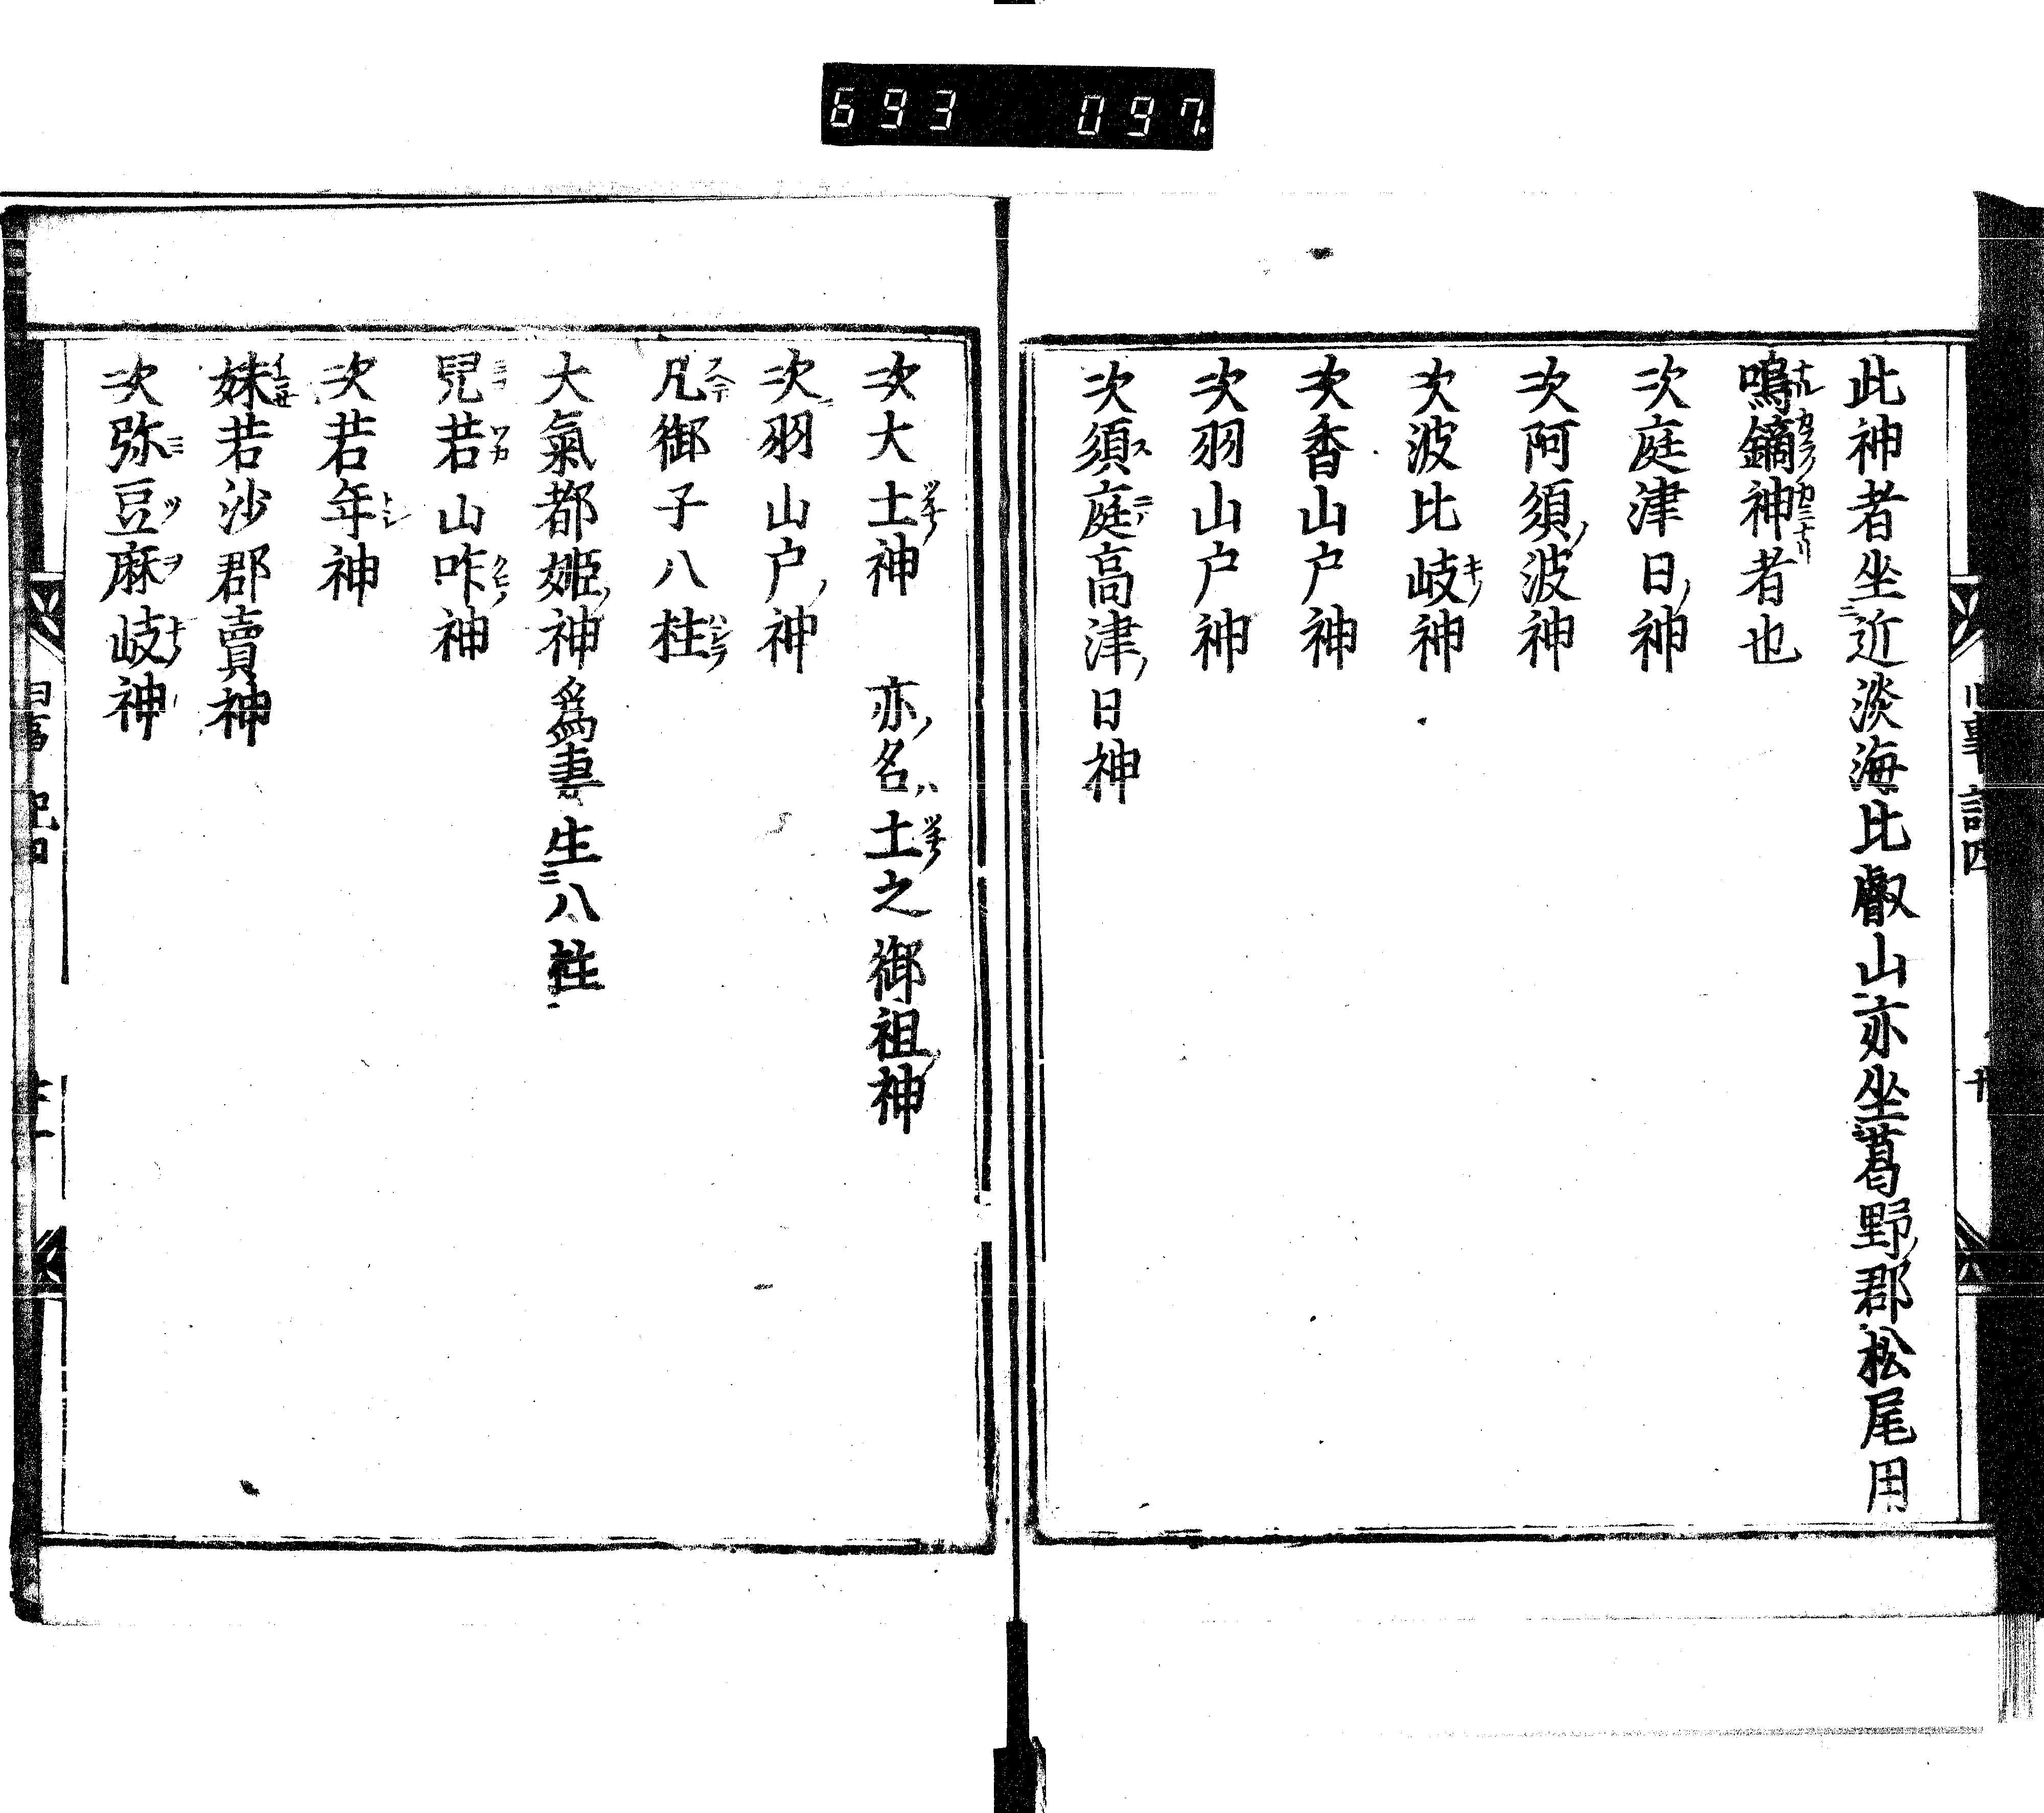 693 097
此神者坐近淡海比叡山亦坐葛野郡松尾用
鳴鏑神者也
次庭津日神
次阿須波神
次波比岐神
次香山戸神
次羽山戸神
次須庭高津日神
次大土神 亦名土之御祖神
次羽山戸神
凡御子八柱
大氣都姫神爲妻生八柱
兒若山咋神
次若年神
妹若沙郡賣神
次弥豆麻岐神